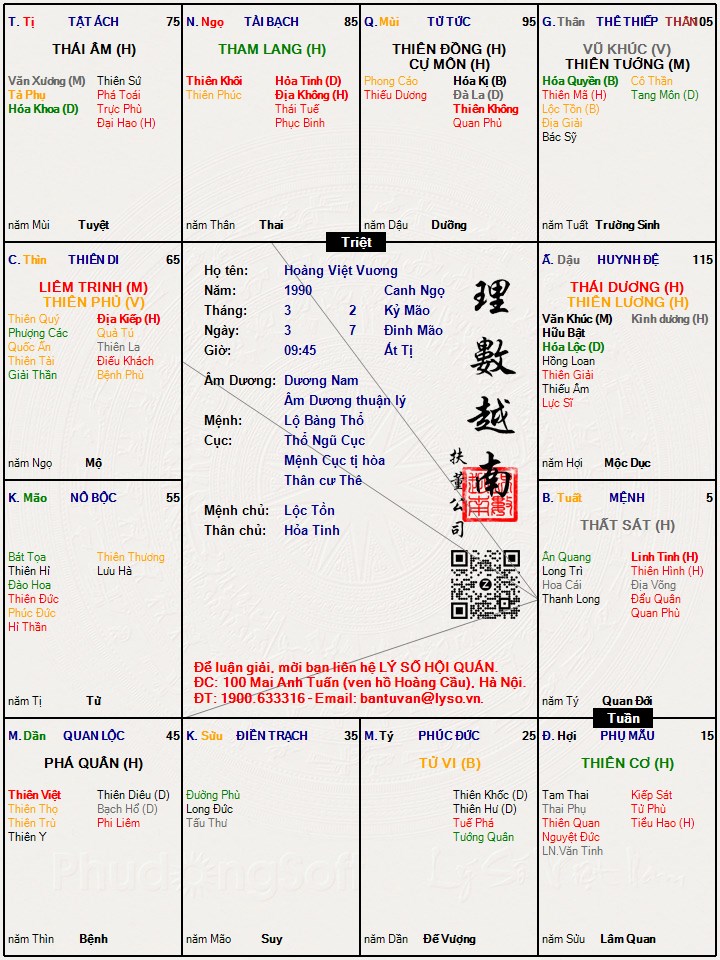 T. Tị TẬT ÁCH 75
THÁI ÂM (H)
Văn Xương (M) Thiên Sứ
Tả Phụ Phá Toái
Hóa Khoa (D) Trực Phù
Đại Hao (H)
năm Mùi Tuyệt
N. Ngọ TÀI BẠCH 85
THAM LANG (H)
Thiên Khôi Hỏa Tinh (D)
Thiên Phúc Địa Không (H)
Thái Tuế
Phục Binh
năm Thân Thai
Q. Mùi TỬ TỨC 95
THIÊN ĐỒNG (H)
CỰ MÔN (H)
Phong Cáo Hóa Kị (B)
Thiếu Dương Đà La (D)
Thiên Không
Quan Phủ
năm Dậu Dưỡng
G. Thân THÊ THIẾP THÂN 105
VŨ KHÚC (V)
THIÊN TƯỚNG (M)
Hóa Quyền (B) Cô Thần
Thiên Mã (H) Tang Môn (D)
Lộc Tồn (B)
Địa Giải
Bác Sỹ
năm Tuất Trường Sinh
Triệt
C. Thìn THIÊN DI 65
LIÊM TRINH (M)
THIÊN PHỦ (V)
Thiên Quý Địa Kiếp (H)
Phượng Các Quả Tú
Quốc Ấn Thiên La
Thiên Tài Điếu Khách
Giải Thần Bệnh Phù
năm Ngọ Mộ
Họ tên: Hoàng Việt Vương
Năm: 1990 Canh Ngọ
Tháng: 3 2 Kỷ Mão
Ngày: 3 7 Đinh Mão
Giờ: 09:45 Ất Tị
Âm Dương: Dương Nam
Âm Dương thuận lý
Mệnh: Lộ Bàng Thổ
Cục: Thổ Ngũ Cục
Mệnh Cục tị hòa
Thân cư Thê
Mệnh chủ: Lộc Tồn
Thân chủ: Hỏa Tinh
理數越南
扶董公司
Để luận giải, mời bạn liên hệ LÝ SỐ HỘI QUÁN.
ĐC: 100 Mai Anh Tuấn (ven hồ Hoàng Cầu), Hà Nội.
ĐT: 1900.633316 - Email: bantuvan@lyso.vn.
Ấ. Dậu HUYNH ĐỆ 115
THÁI DƯƠNG (H)
THIÊN LƯƠNG (H)
Văn Khúc (M) Kình dương (H)
Hữu Bật
Hóa Lộc (D)
Hồng Loan
Thiên Giải
Thiếu Âm
Lực Sĩ
năm Hợi Mộc Dục
K. Mão NÔ BỘC 55
Bát Tọa Thiên Thương
Thiên Hỉ Lưu Hà
Đào Hoa
Thiên Đức
Phúc Đức
Hỉ Thần
năm Tị Tử
B. Tuất MỆNH 5
THẤT SÁT (H)
Ân Quang Linh Tinh (H)
Long Trì Thiên Hình (H)
Hoa Cái Địa Võng
Thanh Long Đẩu Quân
Quan Phù
năm Tý Quan Đới
Tuần
M. Dần QUAN LỘC 45
PHÁ QUÂN (H)
Thiên Việt Thiên Diêu (D)
Thiên Thọ Bạch Hổ (D)
Thiên Trù Phi Liêm
Thiên Y
năm Thìn Bệnh
K. Sửu ĐIỀN TRẠCH 35
Đường Phù
Long Đức
Tấu Thư
năm Mão Suy
M. Tý PHÚC ĐỨC 25
TỬ VI (B)
Thiên Khốc (D)
Thiên Hư (D)
Tuế Phá
Tướng Quân
năm Dần Đế Vượng
Đ. Hợi PHỤ MẪU 15
THIÊN CƠ (H)
Tam Thai Kiếp Sát
Thai Phụ Tử Phù
Thiên Quan Tiểu Hao (H)
Nguyệt Đức
LN.Văn Tinh
năm Sửu Lâm Quan